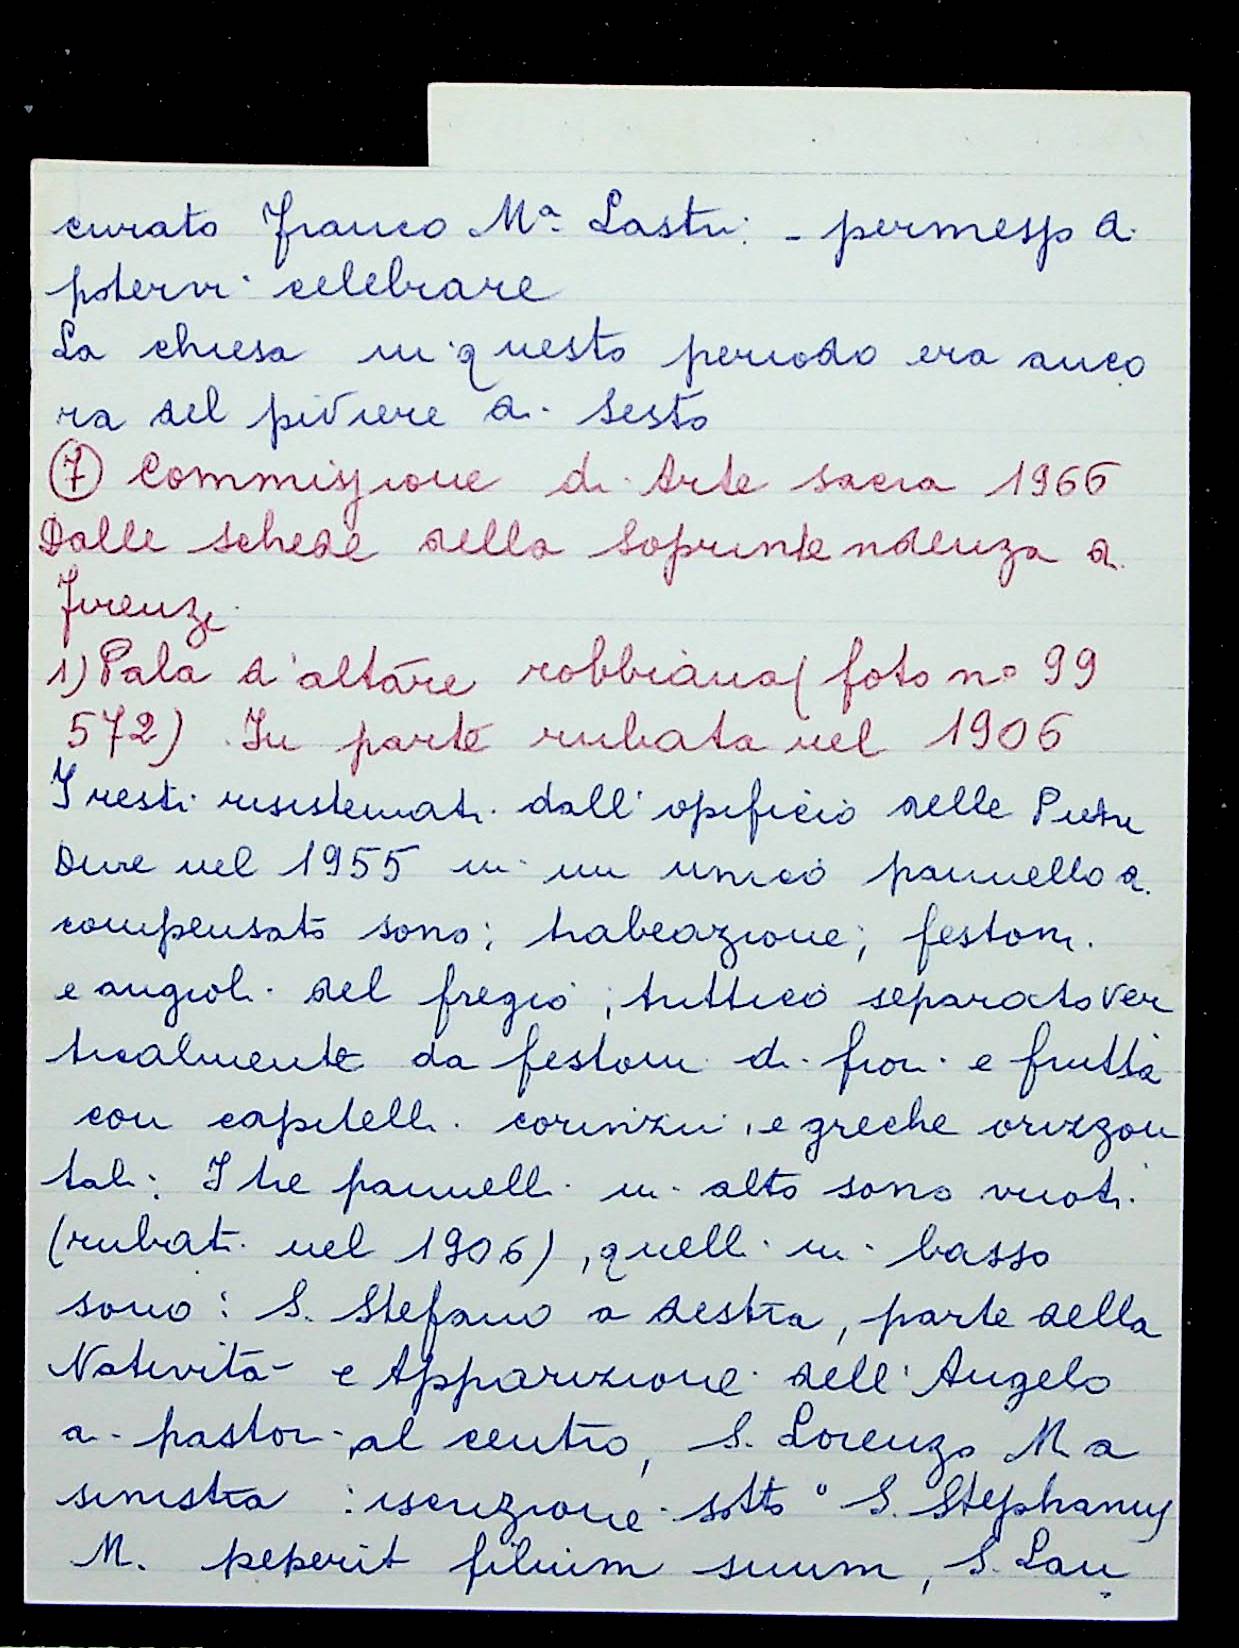 curato Franco Mª Lastri - permesso di
potervi celebrare
La chiesa in questo periodo era anco
ra del piviere di Sesto
⑦ Commissione di Arte sacra 1966
Dalle schede della Soprintendenza di
Firenze
1) Pala d'altare robbiana (foto nº 99
572). In parte rubata nel 1906
I resti risistemati dall'opificio delle Pietre
Dure nel 1955 in un unico pannello di
compensato sono; trabeazione; festoni
e angioli del fregio; trittico separato ver
ticalmente da festoni di fiori e frutta
con capitelli corinzii, e greche orizzon
tali; I tre pannelli in alto sono vuoti
(rubati nel 1906), quelli in basso
sono: S. Stefano a destra, parte della
Natività e Apparizione dell'Angelo
ai pastori al centro, S. Lorenzo M a
sinistra : iscrizione sotto " S. Stephanus
M. peperit filium suum, S. Lau